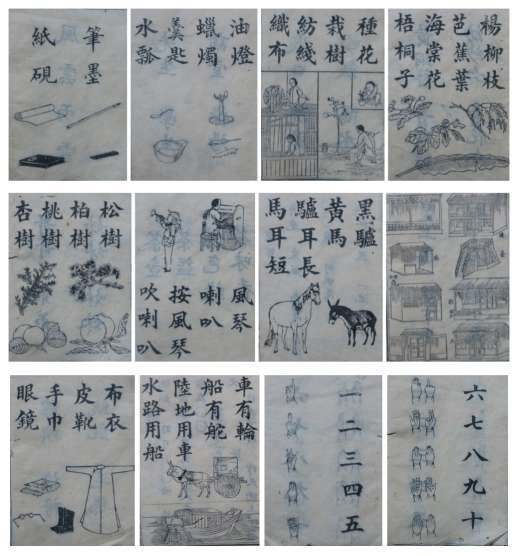 筆墨
紙硯
油燈
蠟燭
羹匙
水瓢
種花
栽樹
紡綫
織布
楊柳枝
芭蕉葉
海棠花
梧桐子
松樹
柏樹
桃樹
杏樹
風琴
喇叭
按風琴
吹喇叭
黑驢
黃馬
驢耳長
馬耳短
布衣
皮靴
手巾
眼鏡
車有輪
船有舵
陸地用車
水路用船
一二三四五
六七八九十